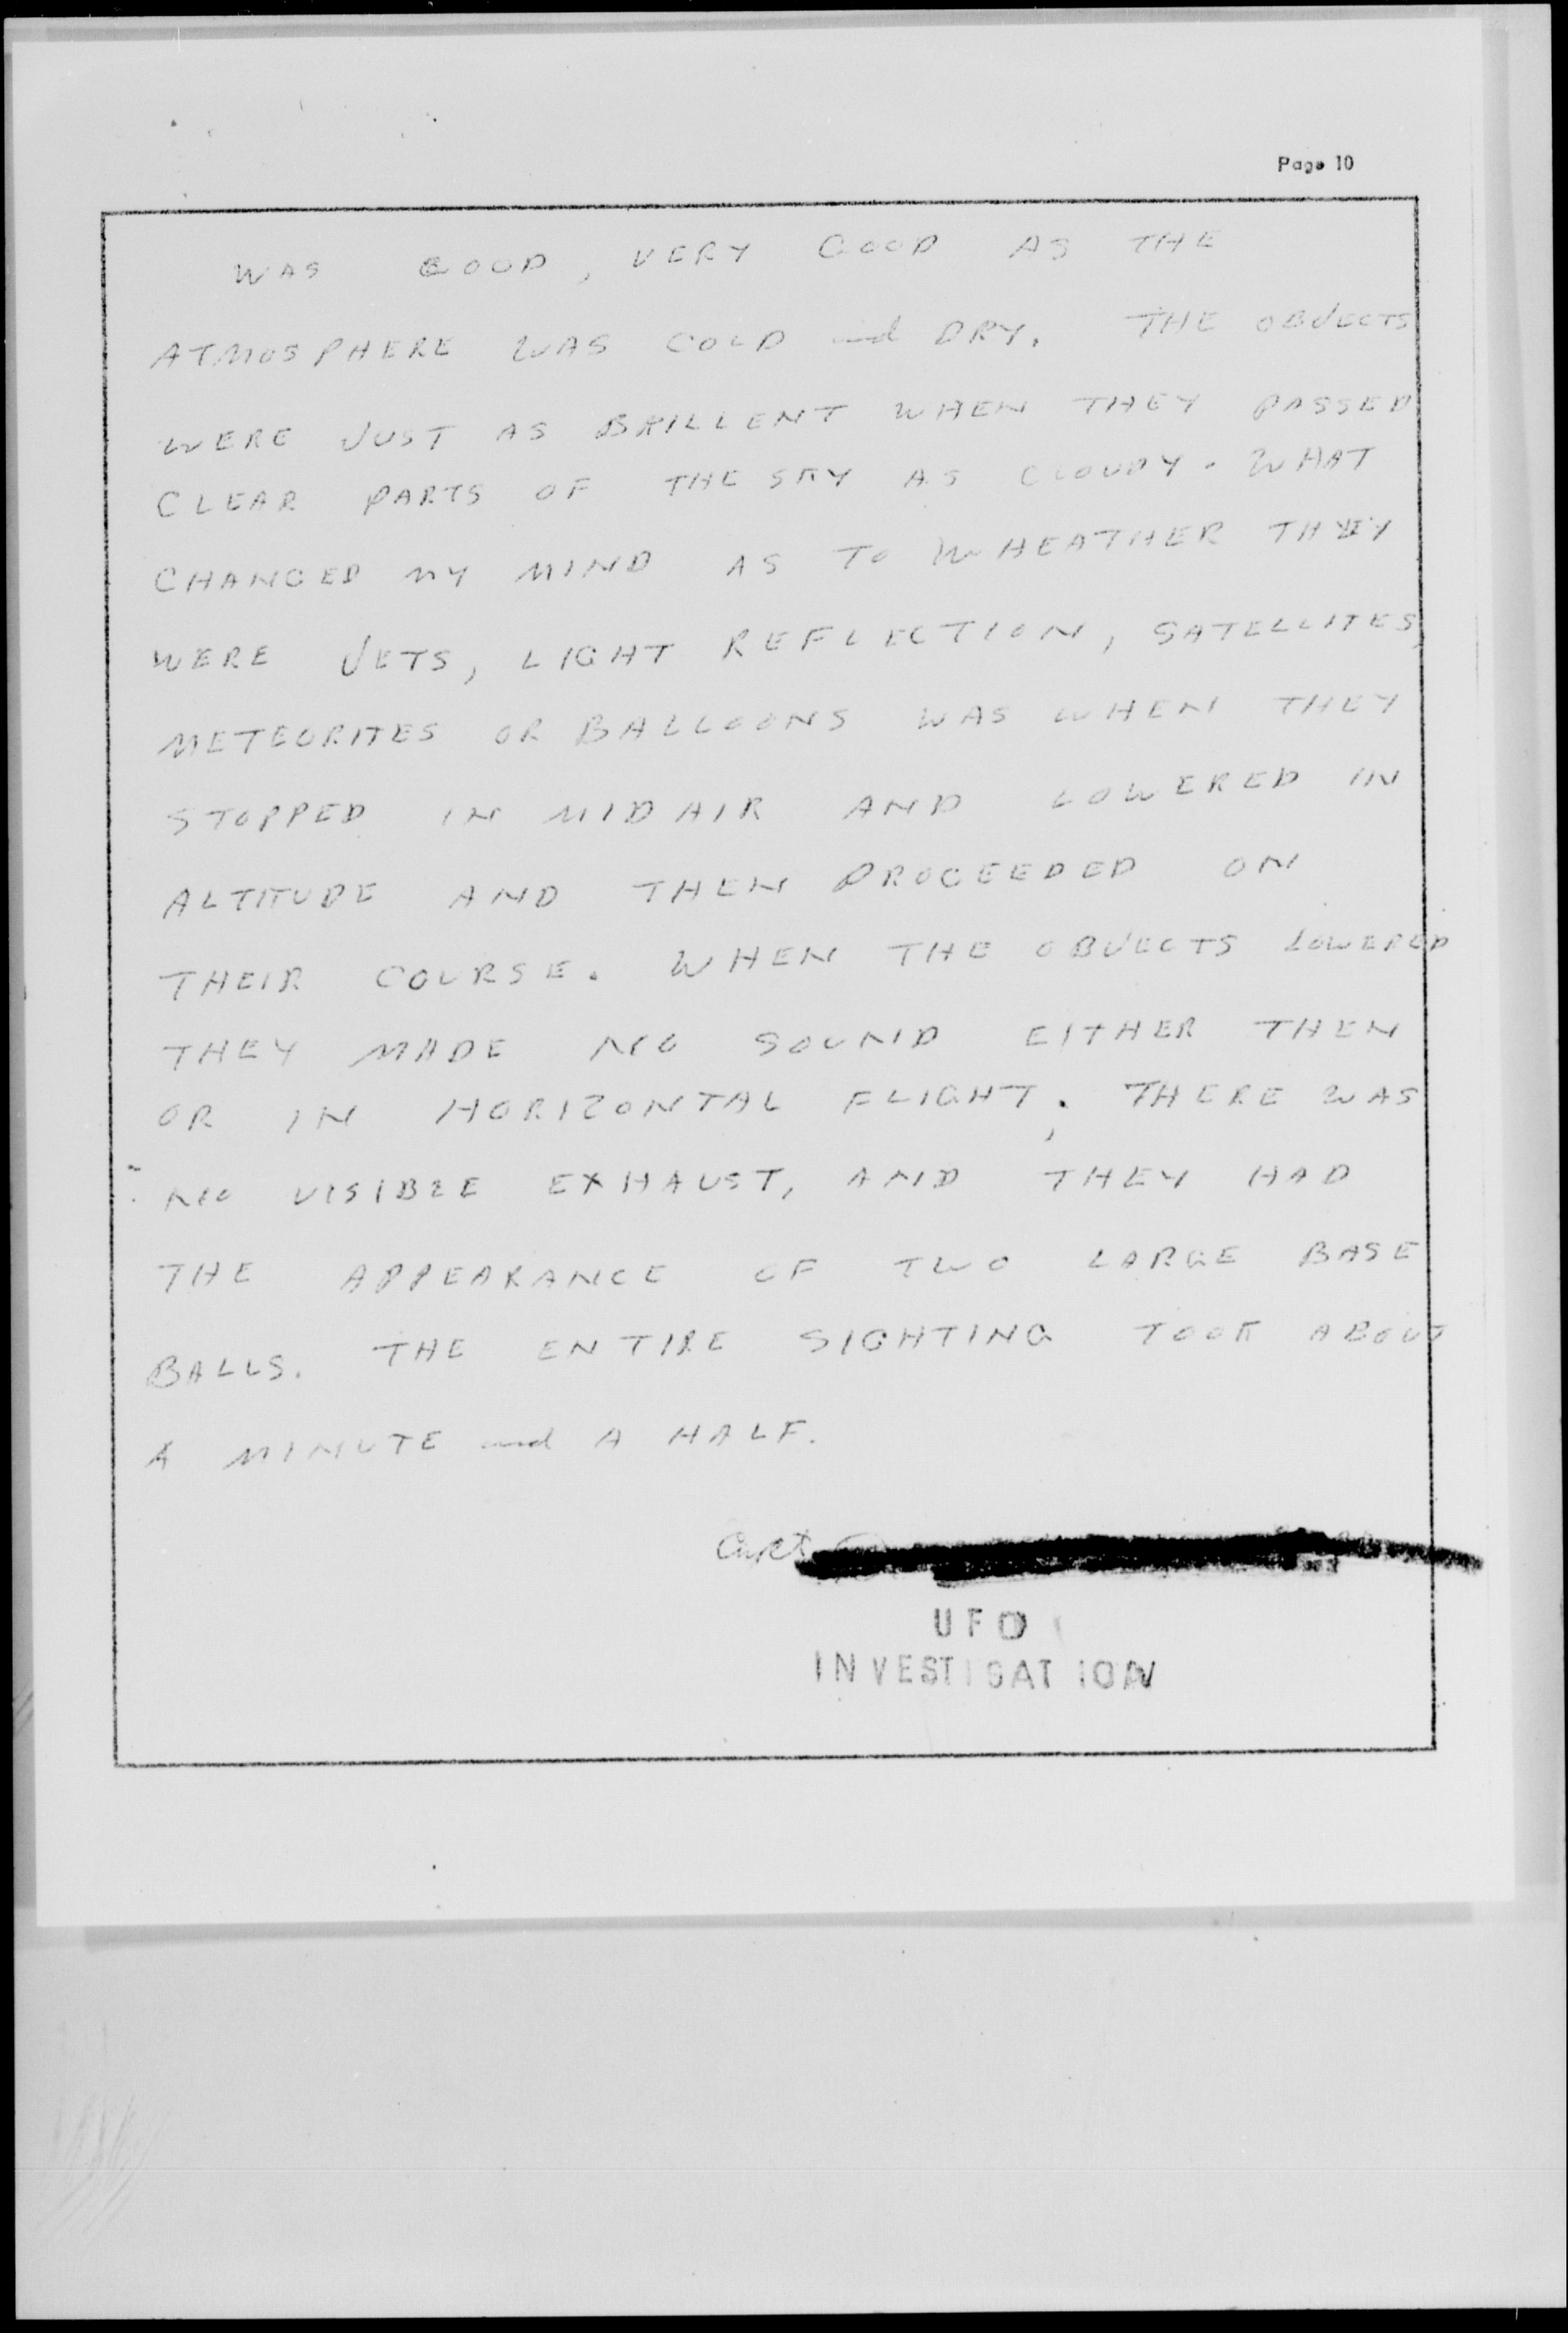 Page 10
WAS GOOD, VERY GOOD AS THE
ATMOSPHERE WAS COLD and DRY. THE OBJECTS
WERE JUST AS BRILLENT WHEN THEY PASSED
CLEAR PARTS OF THE SKY AS CLOUDY. WHAT
CHANGED MY MIND AS TO WHEATHER THEY
WERE JETS, LIGHT REFLECTION, SATELLITES,
METEORITES OR BALLOONS WAS WHEN THEY
STOPPED IN MIDAIR AND LOWERED IN
ALTITUDE AND THEN PROCEEDED ON
THEIR COURSE. WHEN THE OBJECTS LOWERED
THEY MADE NO SOUND EITHER THEN
OR IN HORIZONTAL FLIGHT; THERE WAS
NO VISIBLE EXHAUST, AND THEY HAD
THE APPEARANCE OF TWO LARGE BASE
BALLS. THE ENTIRE SIGHTING TOOK ABOUT
A MINUTE and A HALF.
UFO
INVESTIGATION